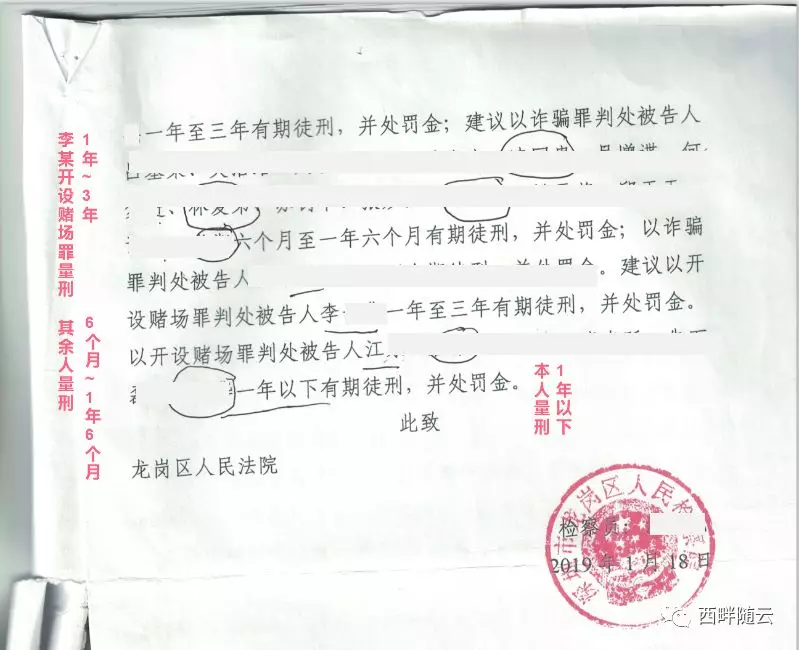 一年至三年有期徒刑，并处罚金；建议以诈骗罪判处被告人
六个月至一年六个月有期徒刑，并处罚金；以诈骗
罪判处被告人
。建议以开
设赌场罪判处被告人李
一年至三年有期徒刑，并处罚金。
以开设赌场罪判处被告人江
一年以下有期徒刑，并处罚金。
此致
龙岗区人民法院
检察员：
2019 年 1 月 18 日
1年~3年
李某开设赌场罪量刑
6个月~1年6个月
其余人量刑
1年以下
本人量刑
龙岗区人民检
西畔随云